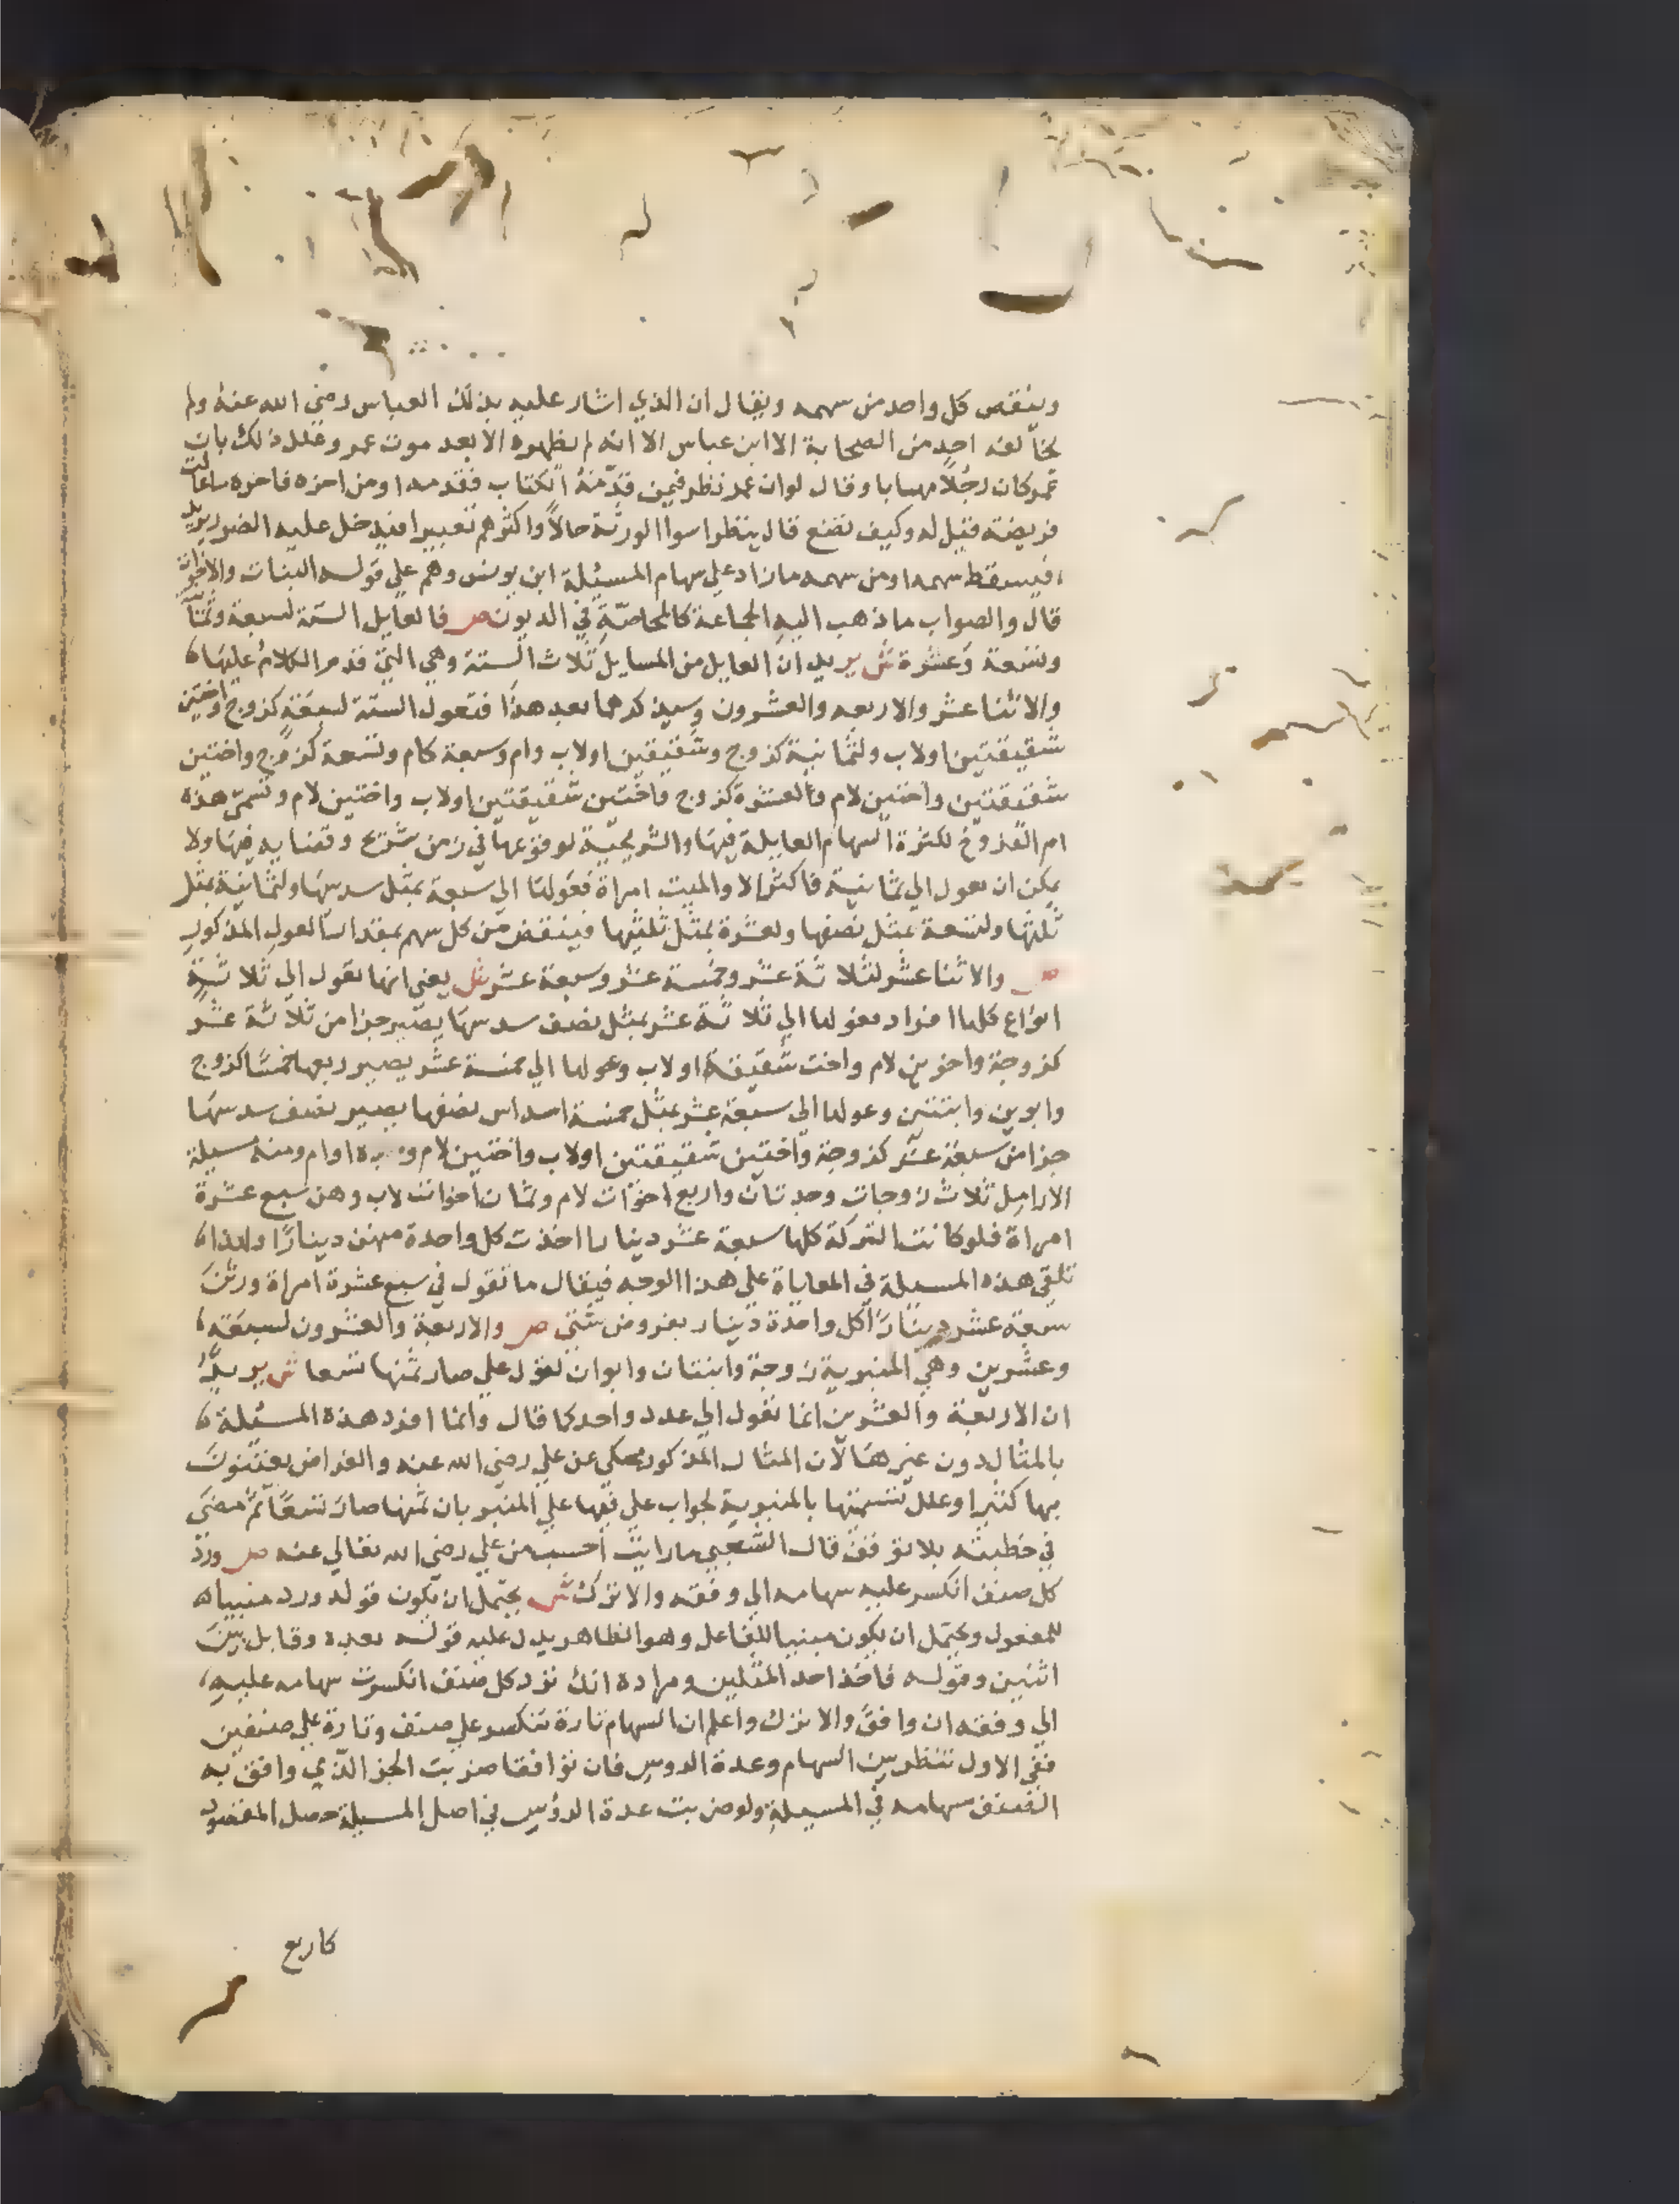 وينقص كل واحد من سهمه ويقال ان الذي اشار عليه بذلك العباس رضي الله عنه ولم
يخالفه احد من الصحابة الا ابن عباس الا انه لم يظهره الا بعد موت عمر وعلل ذلك بان
عمر كان رجلا مهابا وقال لو ان عمر نظر فيمن قدمه الكتاب فقدمه ومن اخره فاخره ما عالت
فريضة فقيل له وكيف نصنع قال ينظر اسوا الورثة حالا واكثرهم تغييرا فيدخل عليه الضرر يريد
فيسقط سهمه او من سهمه ما زاد علي سهام المسئلة ابن يونس وهم علي قوله البنات والاخوات
قال والصواب ما ذهب اليه الجماعة كالمحاصة في الديون ص فالعايل الستة لسبعة وثمانية
وتسعة وعشرة ش يريد ان العايل من المسايل ثلاث الستة وهي التي قدم الكلام عليها
والاثنا عشر والاربعه والعشرون وسيذكرهما بعد هذا فتعول الستة لسبعة كزوج واختين
شقيقتين اولاب ولثمانية كزوج وشقيقتين اولاب وام وسبعة كام وتسعة كزوج واختين
شقيقتين واختين لام والعشرة كزوج واختين شقيقتين اولاب واختين لام وتسمي هذه
ام الفروخ لكثرة السهام العايلة فيها والشريحية لوقوعها في زمن شريح وقضايه فيها ولا
يمكن ان تعول الي ثمانية فاكثر الا والميت امراة فعولها الي سبعة بمثل سدسها ولثمانية بمثل
ثلثها ولتسعة بمثل نصفها ولعشرة بمثل ثلثيها فينقص من كل سهم بمقدار العول المذكور
ص والاثنا عشر لثلاثة عشر وخمسة عشر وسبعة عشر ش يعني انها تعول الي ثلاثة
انواع كلها افراد فعولها الي ثلاثة عشر بمثل نصف سدسها يصير جزا من ثلاثة عشر
كزوجة واخوين لام واخت شقيقة اولاب وعولها الي خمسة عشر يصير ربعها خمسا كزوج
وابوين وابنتين وعولها الي سبعة عشر بمثل خمسة اسداس نصفها يصير نصف سدسها
جزا من سبعة عشر كزوجة واختين شقيقتين اولاب واختين لام وجدة او ام ومنه مسيلة
الارامل ثلاث زوجات وجدتان واربع اخوات لام وثمان اخوات لاب وهن سبع عشرة
امراة فلو كانت التركة كلها سبعة عشر دينارا اخذت كل واحدة منهن دينارا ولهذا
تلقي هذه المسيلة في المعاياة علي هذا الوجه فيقال ما تقول في سبع عشرة امراة ورثن
سبعة عشر دينارا كل واحدة دينار بفروض شتي ص والاربعة والعشرون لسبعة
وعشرين وهي المنبرية زوجة وابنتان وابوان لقول علي صار ثمنها تسعا ش يريد
ان الاربعة والعشرين انما تعول الي عدد واحد كما قال وانما افرد هذه المسئلة
بالمثال دون غيرها لان المثال المذكور محكي عن علي رضي الله عنه والفراض يعتنون
بها كثيرا وعلل تسميتها بالمنبرية لجواب علي فيها علي المنبر بان ثمنها صار تسعا ثم مضي
في خطبته بلا توقف قال الشعبي ما رايت احسب من علي رضي الله تعالي عنه ص ورد
كل صنف انكسر عليه سهامه الي وفقه والا ترك ش يحتمل ان يكون قوله ورد مبنيا
للمفعول ويحتمل ان يكون مبنيا للفاعل وهو الظاهر يدل عليه قوله بعده وقابل بين
اثنين وقوله فاخذ احد المثلين ومراده انك ترد كل صنف انكسرت سهامه عليه
الي وفقه ان وافق والا ترك واعلم ان السهام تارة تنكسر علي صنف وتارة علي صنفين
ففي الاول تنظر بين السهام وعدة الروس فان توافقا ضربت الجز الذي وافق به
الصنف سهامه في المسيلة ولو ضربت عدة الرؤس في اصل المسيلة حصل المقصود
كاربع